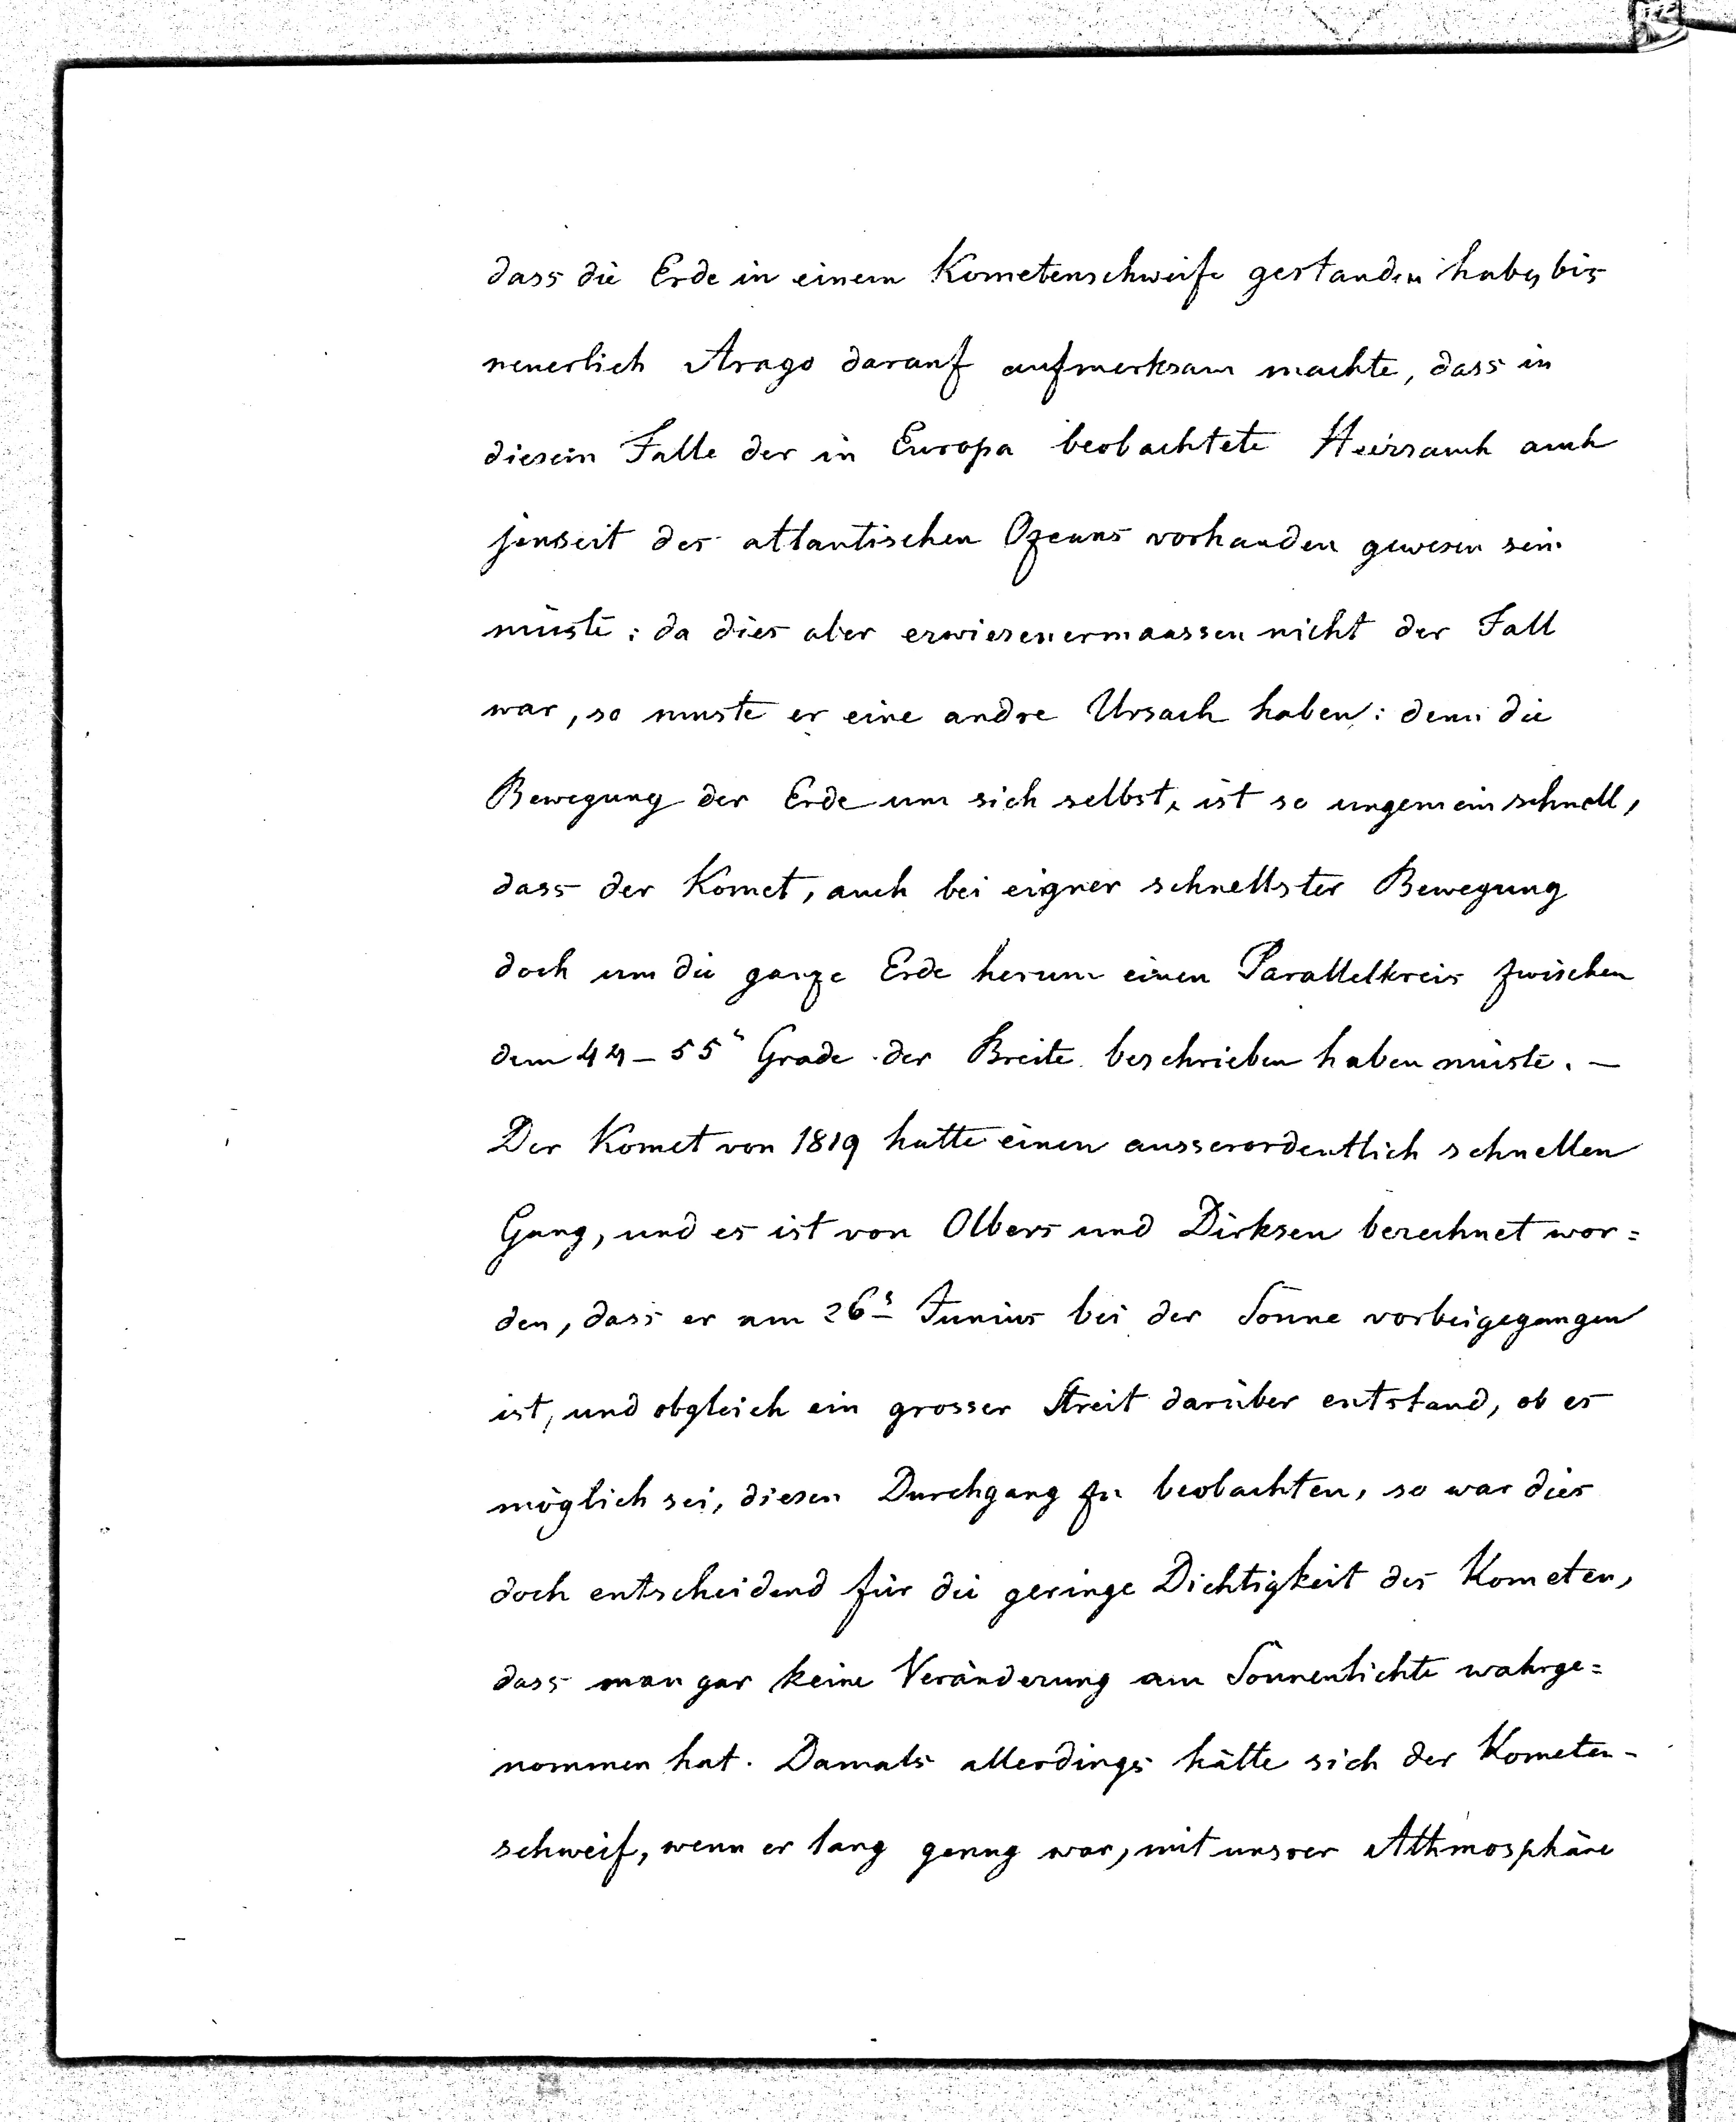 dass die Erde in einem Kometenschweife gestanden habe, bis
neuerlich Arago darauf aufmerksam machte, dass in
diesem Falle der in Europa beobachtete Heerrauch auch
jenseit des atlantischen Ozeans vorhanden gewesen sein
müste: da dies aber erwiesenermaassen nicht der Fall
war, so muste er eine andre Ursach haben: denn die
Bewegung der Erde um sich selbst, ist so ungemein schnell,
dass der Komet, auch bei eigner schnellster Bewegung
doch um die ganze Erde herum einen Parallelkreis zwischen
dem 44-55n Grade der Breite beschrieben haben müste. —
Der Komet von 1819 hatte einen ausserordentlich schnellen
Gang, und es ist von Olbers und Dirksen berechnet wor=
den, dass er am 26s Junius bei der Sonne vorbeigegangen
ist, und obgleich ein grosser Streit darüber entstand, ob es
möglich sei, diesen Durchgang zu beobachten, so war dies
doch entscheidend für die geringe Dichtigkeit des Kometen,
dass man gar keine Veränderung am Sonnenlichte wahrge=
nommen hat. Damals allerdings hätte sich der Kometen-
schweif, wenn er lang genug war, mit unsrer Athmosphäre